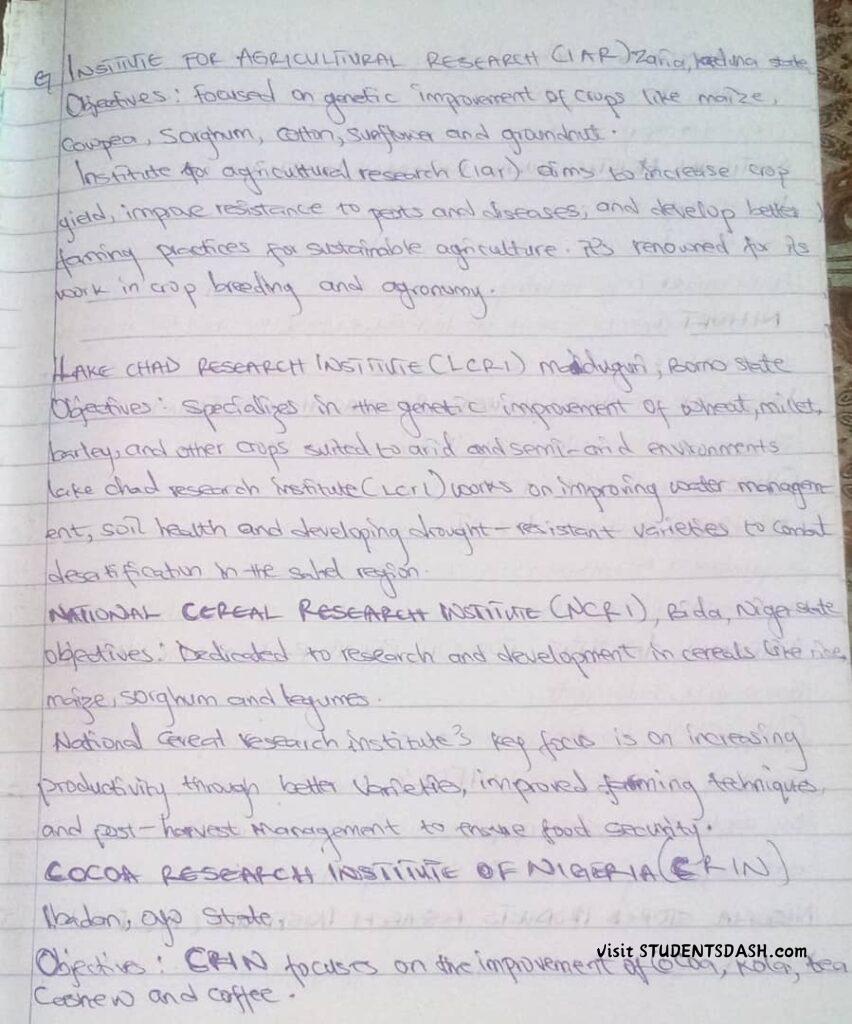 INSTITUTE FOR AGRICULTURAL RESEARCH (IAR) Zaria, kaduna state
Objectives: focused on genetic improvement of crops like maize,
Cowpea, Sorghum, Cotton, Sunflower and groundnut.
Institute for agricultural research (iar) aims to increase crop
yield, improve resistance to pests and diseases, and develop better
farming practices for sustainable agriculture. It's renouned for its
work in crop breeding and agronomy.
LAKE CHAD RESEARCH INSTITUTE (LCRI) Maiduguri, Borno state
Objectives: Specializes in the genetic improvement of wheat, millet,
barley, and other crops suited to arid and semi-arid environments
lake chad research institute (Lcri) works on improving water managem
ent, soil health and developing drought-resistant varieties to combat
desertification in the sahel region.
NATIONAL CEREAL RESEARCH INSTITUTE (NCRI), Bida, Niger state
objectives: Dedicated to research and development in cereals like rice,
maize, sorghum and legumes.
National Cereal research institute's key focus is on increasing
productivity through better varieties, improved farming techniques,
and post-harvest management to ensure food security.
COCOA RESEARCH INSTITUTE OF NIGERIA (CRIN)
Ibadan, oyo state,
Objectives: CRIN focuses on the improvement of Cocoa, Kola, tea
Cashew and coffee.
visit STUDENTSDASH.com